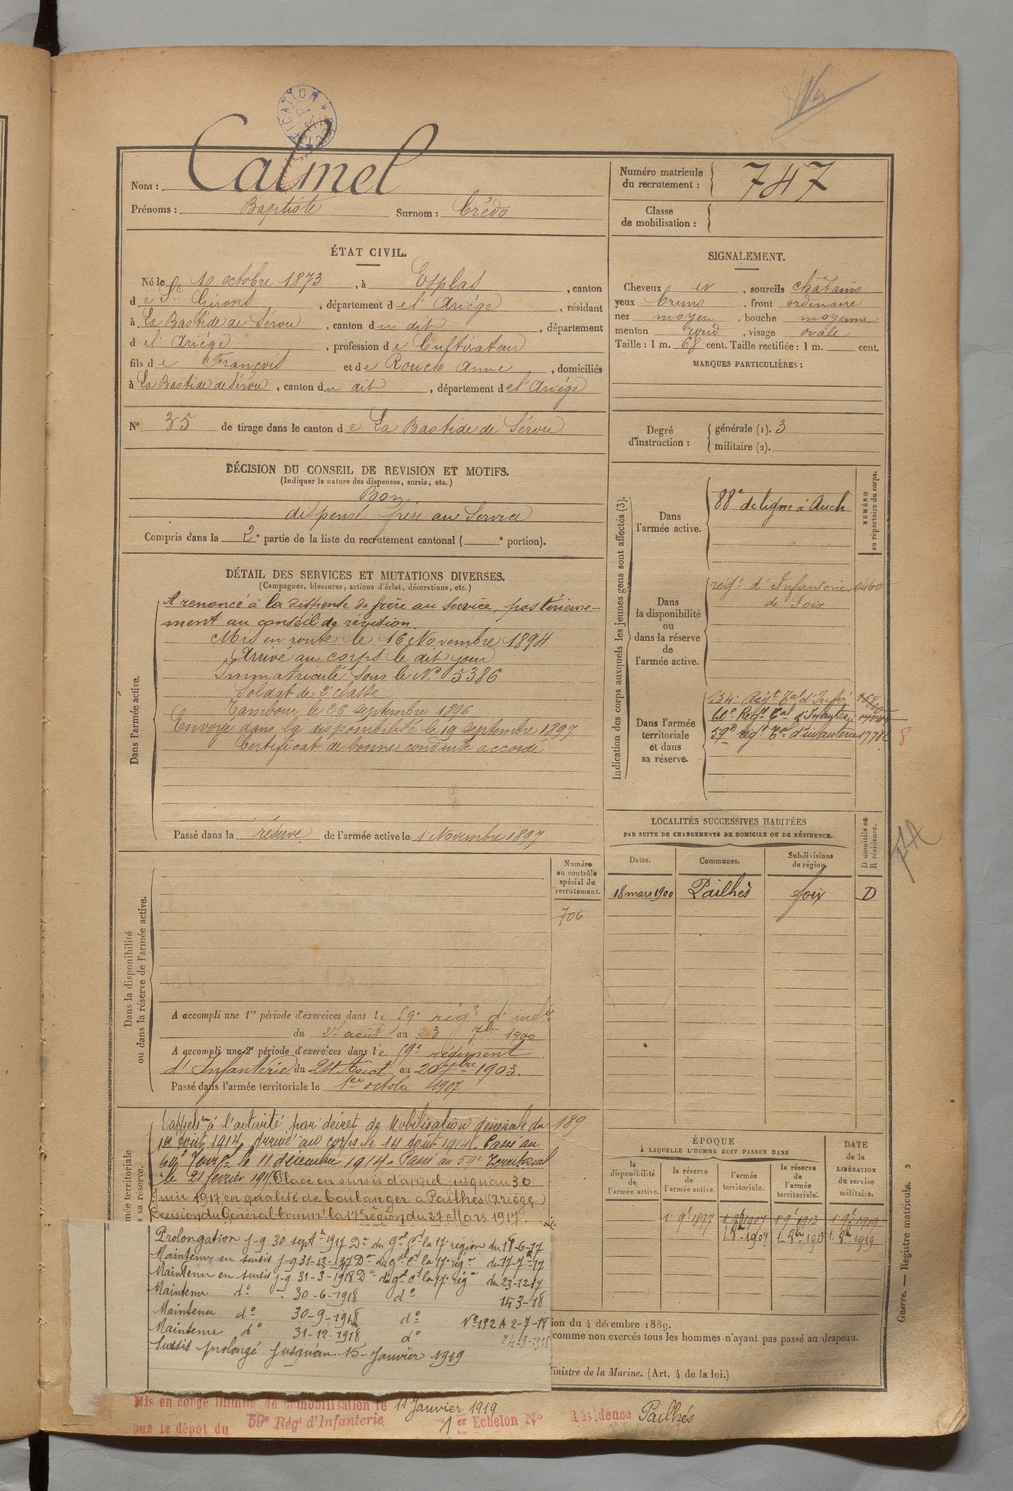 Nom : Calmel
Prénoms : Baptiste Surnom : Crédo
Numéro matricule du recrutement : 747
Classe de mobilisation :
ÉTAT CIVIL.
Né le 19 octobre 1873, à Esplas, canton
de St Girons, département de l'Ariége, résidant
à La Bastide de Sérou, canton du dit, département
d el'Ariége, profession de Cultivateur
fils de François et de Rouch Anne, domiciliés
à La Bastide de Sérou, canton du dit, département de l'Ariége
N° 35 de tirage dans le canton de La Bastide de Sérou
SIGNALEMENT.
Cheveux et, sourcils châtains
yeux bruns, front ordinaire
nez moyen, bouche moyenne
menton rond, visage ovale
Taille : 1 m. 68 cent. Taille rectifiée : 1 m. cent.
MARQUES PARTICULIÈRES :
Degré d'instruction : générale (1). 3
militaire (2).
DÉCISION DU CONSEIL DE REVISION ET MOTIFS.
(Indiquer la nature des dispenses, sursis, etc.)
Bon
dispensé frère au Service
Compris dans la 2e partie de la liste du recrutement cantonal ( e portion).
DÉTAIL DES SERVICES ET MUTATIONS DIVERSES.
(Campagnes, blessures, actions d'éclat, décorations, etc.)
Dans l'armée active.
A renoncé à la dispense de frère au Service, postérieure-
ment au conseil de révision.
Mis en route le 16 Novembre 1894
Arrivé au corps le dit jour
Immatriculé sous le N° 5386
Soldat de 2e classe
Tambour le 26 septembre 1896
Envoyé dans la disponibilité le 19 septembre 1897
Certificat de bonne conduite accordé
Passé dans la réserve de l'armée active le 1 Novembre 1897
Indication des corps auxquels les jeunes gens sont affectés (3).
NUMÉRO au répertoire du corps.
Dans l'armée active.
88e de ligne à Auch
Dans la disponibilité ou dans la réserve de l'armée active.
régt. d'Infanterie
de Foix
Dans l'armée territoriale et dans sa réserve.
134e Régt Tal d'Infie
60e Regt Tal d'Infanterie
59e Regt Tal d'infanterie 1778
8
LOCALITÉS SUCCESSIVES HABITÉES
PAR SUITE DE CHANGEMENTS DE DOMICILE OU DE RÉSIDENCE.
Dates. Communes. Subdivisions de région. D domicile ou R résidence.
18 mars 1900 Pailhès Foix D
Dans la disponibilité ou dans la réserve de l'armée active.
Numéro au contrôle spécial du recrutement.
706
A accompli une 1re période d'exercices dans le 59e régt d'infie
du 27 août au 23 7bre 1900
A accompli une 2e période d'exercices dans le 59e régiment
d'Infanterie du 24 Août au 20 7bre 1903.
Passé dans l'armée territoriale le 1er octobre 1907
189
Rappelé à l'activité par décret de Mobilisation générale du
1er août 1914, arrivé au corps le 14 août 1914. Passé au
60e Terral le 11 décembre 1914. Passé au 59e Territorial
le 21 février 1917. Placé en sursis d'appel jusqu'au 30
juin 1917 en qualité de boulanger à Pailhès (Ariège)
Décision du Général Comm' la 17e région du 27 Mars 1917.
Prolongation j-q 30 septe 1917 Don du gal Ct la 17e région du 18-6-17
Maintenu en sursis j-q 31-12-1917 Don du gal Ct la 17e régn du 17-7-17
Maintenu en sursis j-q 31-3-1918 Don du gal Ct la 17e régn du 23-12-17
Maintenu do 30-6-1918 do 14-3-18
Maintenu do 30-9-1918 do N° 192 A 2-7-18
Maintenu do 31-12-1918 do 24-9-1918
Sursis prolongé jusqu'au 15 Janvier 1919
ÉPOQUE
À LAQUELLE L'HOMME DOIT PASSER DANS
la disponibilité de l'armée active. la réserve de l'armée active. l'armée territoriale. la réserve de l'armée territoriale.
DATE DE LA LIBÉRATION DU service militaire.
1. 9bre 1897
1. 8bre 1907 1. 8bre 1913 1. 8bre 1919
ion du 4 décembre 1889.
comme non exercés tous les hommes n'ayant pas passé au drapeau.
inistre de la Marine. (Art. 4 de la loi.)
Guerre. — Registre matricule. 2
Mis en congé illimité de démobilisation le 11 Janvier 1919
par le dépôt du 59e Régt d'Infanterie 1er Echelon N° Résidence Pailhès